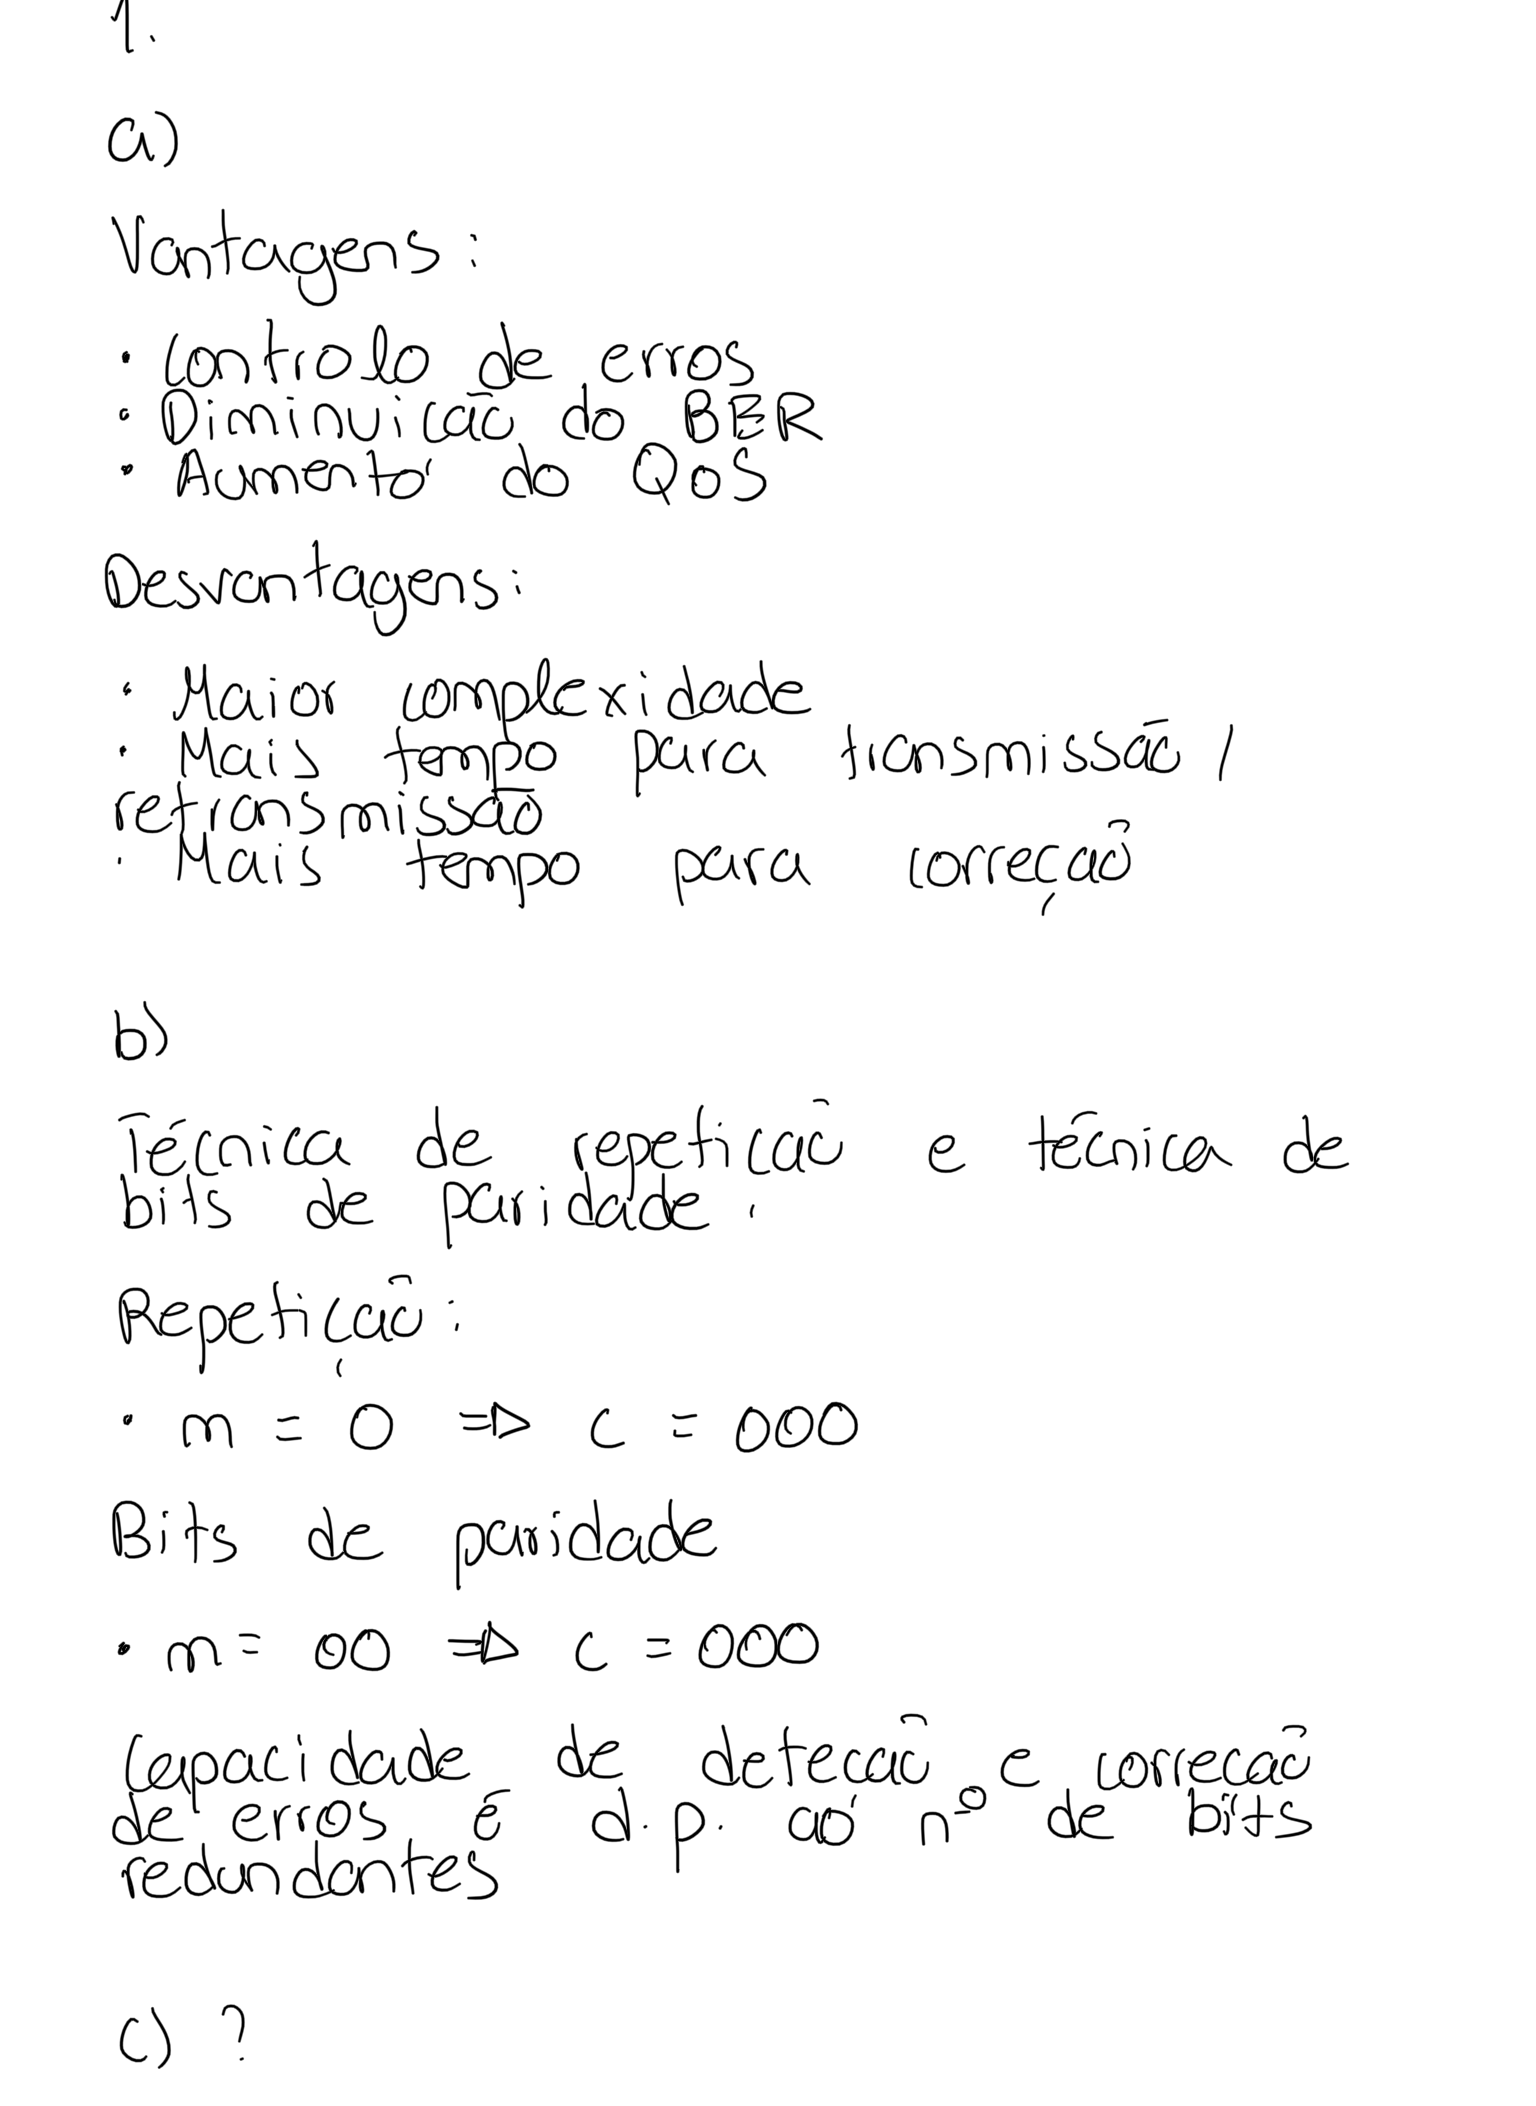 1.
a)
Vantagens:
• Controlo de erros
• Diminuicão do BER
• Aumento do QoS
Desvantagens:
• Maior complexidade
• Mais tempo para transmissão /
retransmissão
• Mais tempo para correção
b)
Técnica de repeticão e técnica de
bits de paridade.
Repetição:
• m = 0 => C = 000
Bits de paridade
• m = 00 => C = 000
Capacidade de detecão e correcão
de erros é d.p. ao nº de bits
redundantes
c) ?